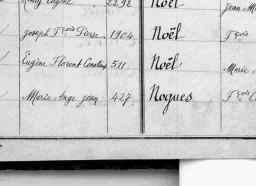 Eugène 2292 Noël Jean M
Joseph Fçois Pierre 1904 Noël Fçois
Eugène Florent 511 Noël Marie
Marie Ange Jean 427 Nogues Fçois